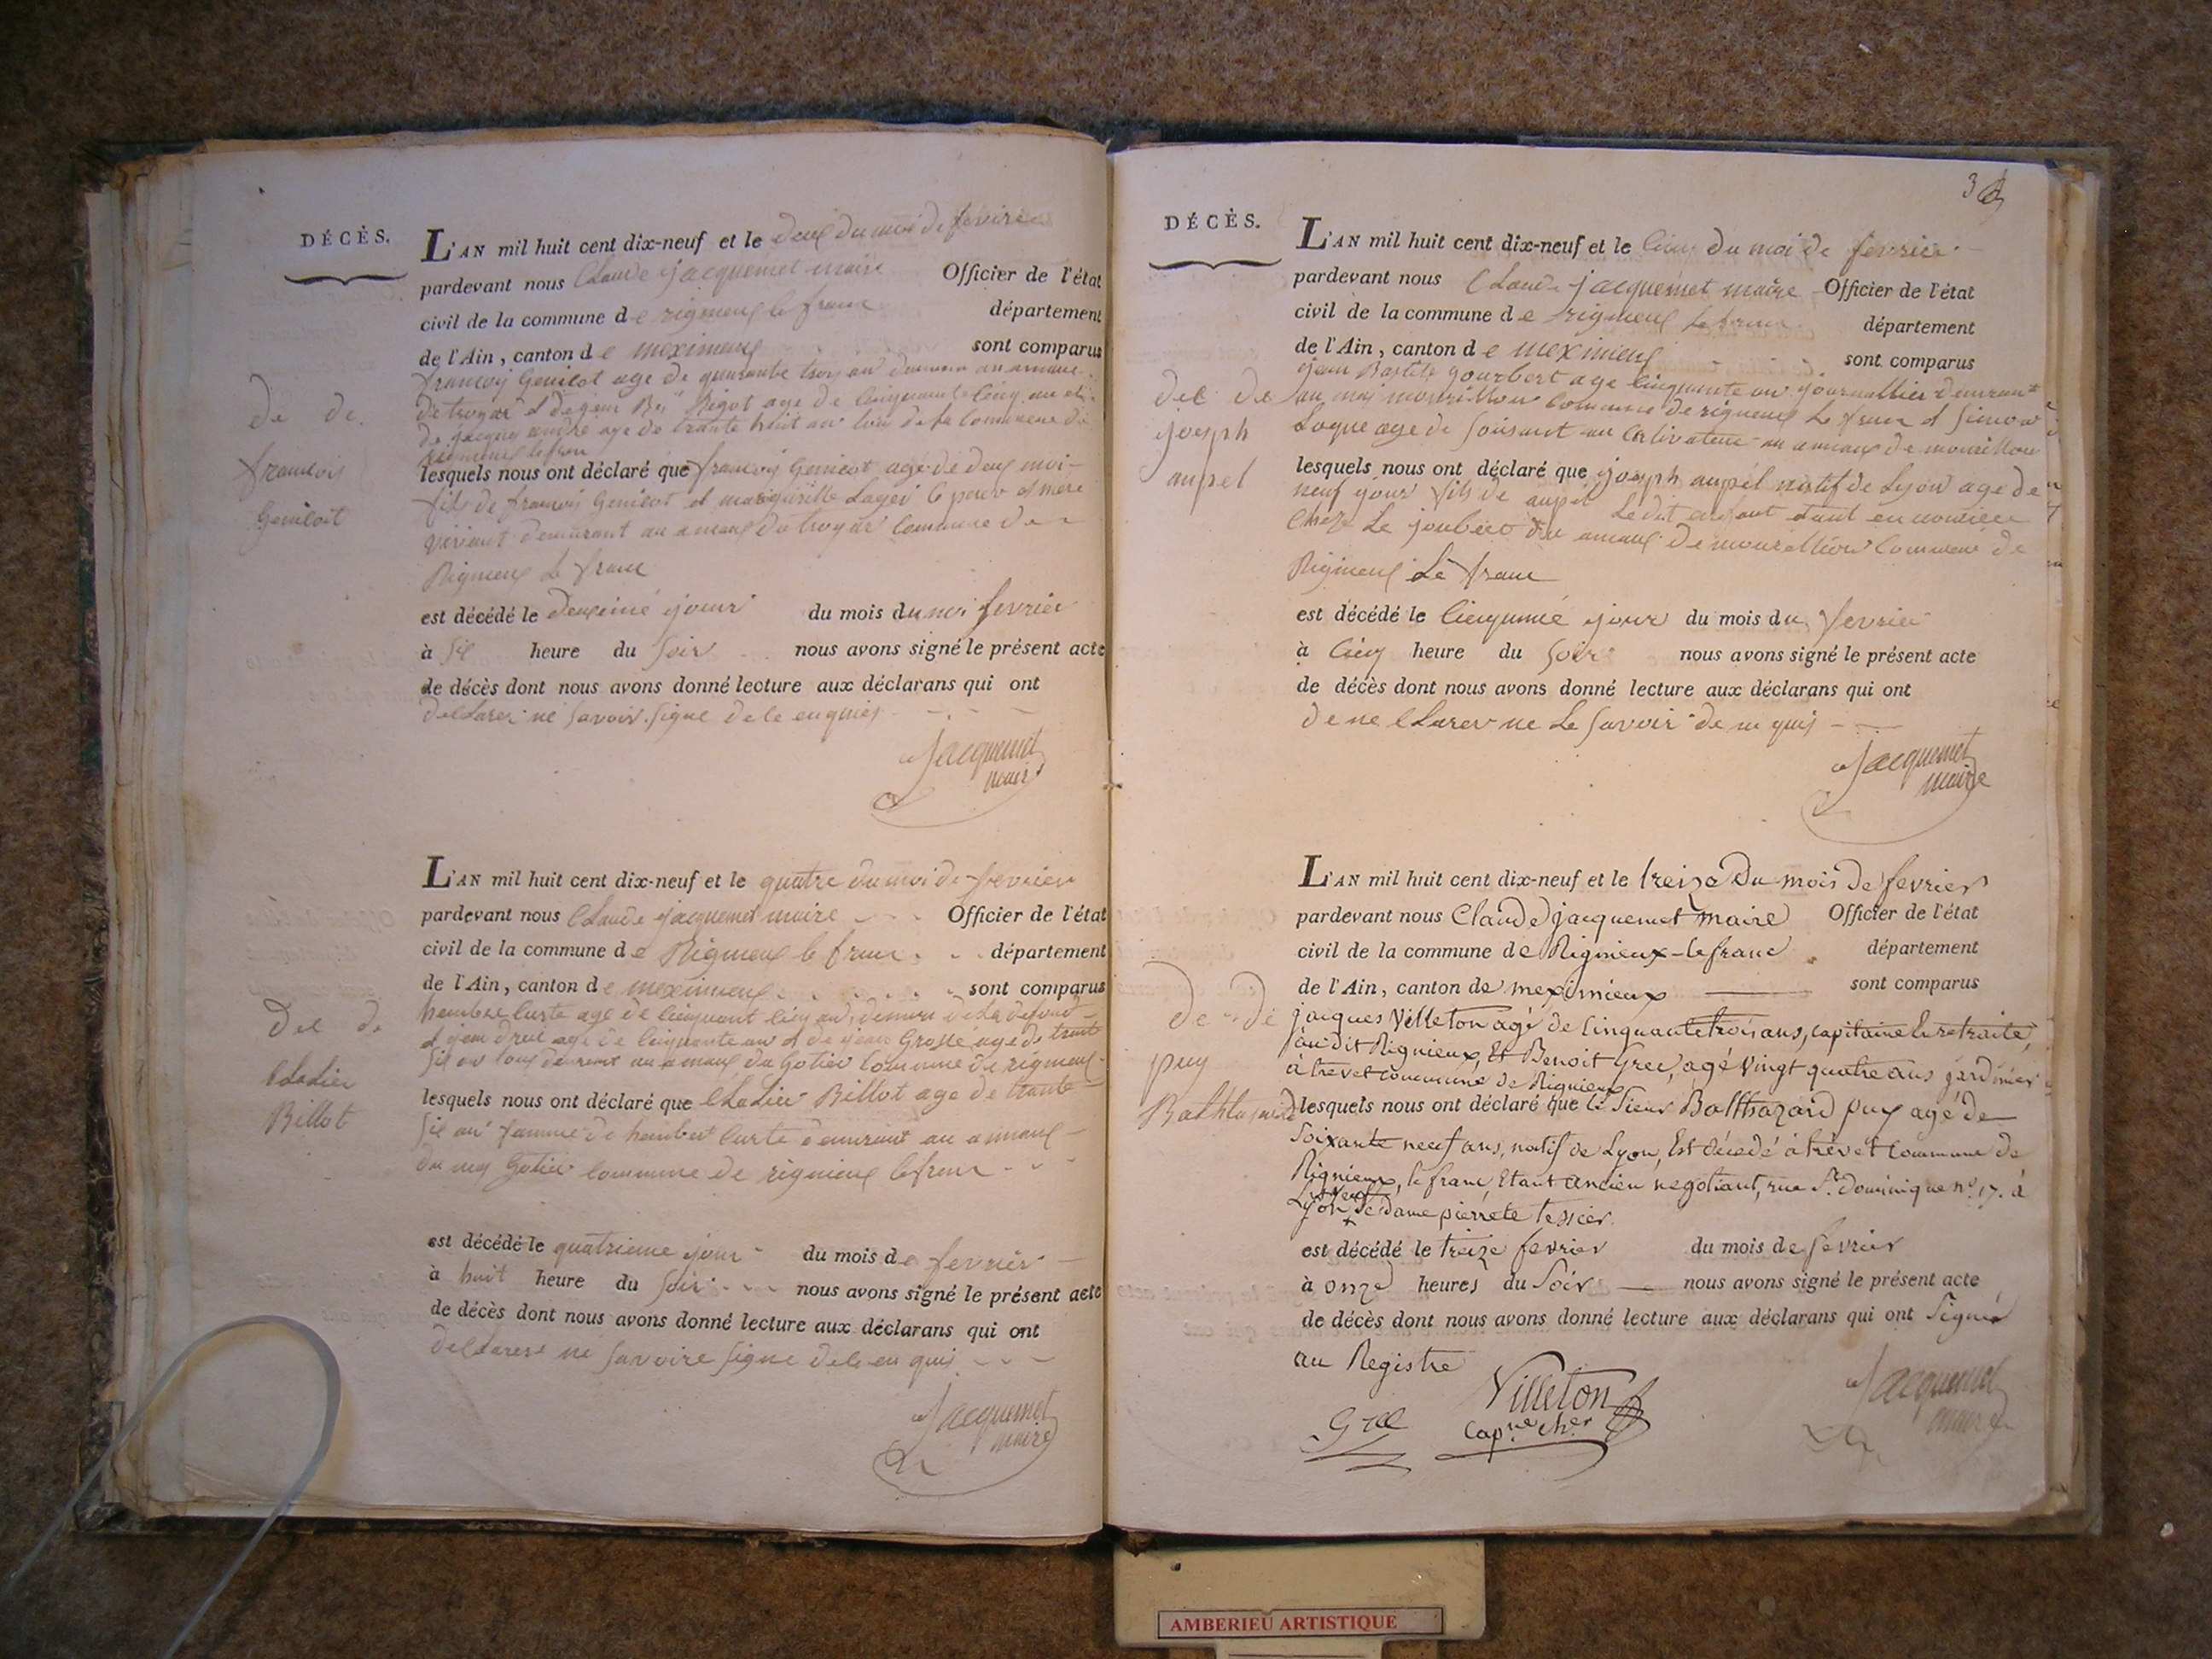 DÉCÈS.
L'AN mil huit cent dix-neuf et le deux du moi de fevrier
pardevant nous Claude jacquemet maire Officier de l'état
civil de la commune de rigneux le franc département
de l'Ain, canton de meximieux sont comparus
francois Genicot age de quarante trois an
de troyar et de jean age de cinquante cinq an et
de jacques andre age de trante huit an tous de la commune de
rigneux le fran
de de
francois
Genicot
lesquels nous ont déclaré que francois Genicot age de deux moi
fils de francois Genicot et marguerite Lager le pere et mere
vivant demeurant au amaux de troyar commune de
Rigneux le franc
est décédé le deuxeme jour du mois du moi fevrier
à six heure du soir nous avons signé le présent acte
de décès dont nous avons donné lecture aux déclarans qui ont
declarer ne savoir signe de le enquis
Jacquemet
maire
L'AN mil huit cent dix-neuf et le quatre du moi de fevrier
pardevant nous Claude jacquemet maire Officier de l'état
civil de la commune de Rigneux le franc département
de l'Ain, canton de meximieux sont comparus
humbert Curte age de cinquant cinq an
et jean age de cinquante an et de jean Grosse age de trante
six an tous demeurant au amaux du Gotier commune de rigneux
dec de
Cladier
Billot
lesquels nous ont déclaré que Cladier Billot age de trante
six an famme de humbert Curte demeurant au amaux
du Gotier commune de rigneux le fran
est décédé le quatrieme jour du mois de fevrier
à huit heure du soir nous avons signé le présent acte
de décès dont nous avons donné lecture aux déclarans qui ont
declarere ne savoire signe dele en quis
Jacquemet
maire
3
DÉCÈS.
L'AN mil huit cent dix-neuf et le cinq du moi de fevrier
pardevant nous Claude jacquemet maire Officier de l'état
civil de la commune de rigneux le franc département
de l'Ain, canton de meximieux sont comparus
jean Batite gourbert age cinquante an journallier demurant
au commune de rigneux le fran et simon
Loque age de soisant an cultivateur au amaux de
dec de
joseph
aupel
lesquels nous ont déclaré que joseph aupel natif de Lyon age de
neuf jour fils de aupel Ledit enfant etant en nourice
chez Le joubert au amaux de commune de
Rigneux Le franc
est décédé le cinquime jour du mois du fevrier
à cinq heure du soir nous avons signé le présent acte
de décès dont nous avons donné lecture aux déclarans qui ont
de ne clarer ne le savoir de en quis
Jacquemet
maire
L'AN mil huit cent dix-neuf et le treize du mois de fevrier
pardevant nous Claude jacquemet maire Officier de l'état
civil de la commune de Rignieux-lefranc département
de l'Ain, canton de meximieux sont comparus
jacques Villeton agé de cinquante trois ans, capitaine en retraite,
au dit Rignieux, Et Benoit Grec, agé vingt quatre ans jardinier
à trevet commune de Rignieux
de de
puy
Balthazard
lesquels nous ont déclaré que le Sieur Balthazard puy agé de
soixante neuf ans, natif de Lyon, Est décedé à trevet commune de
Rignieux, le franc, Etant ancien negotiant, rue St. dominique no. 17. à
Lyon, veuf de dame pierrete tessier
est décédé le treize fevrier du mois de fevrier
à onze heures du soir nous avons signé le présent acte
de décès dont nous avons donné lecture aux déclarans qui ont signé
au Registre
Villeton
Jacquemet
maire
Grec
capne. cher
AMBERIEU ARTISTIQUE